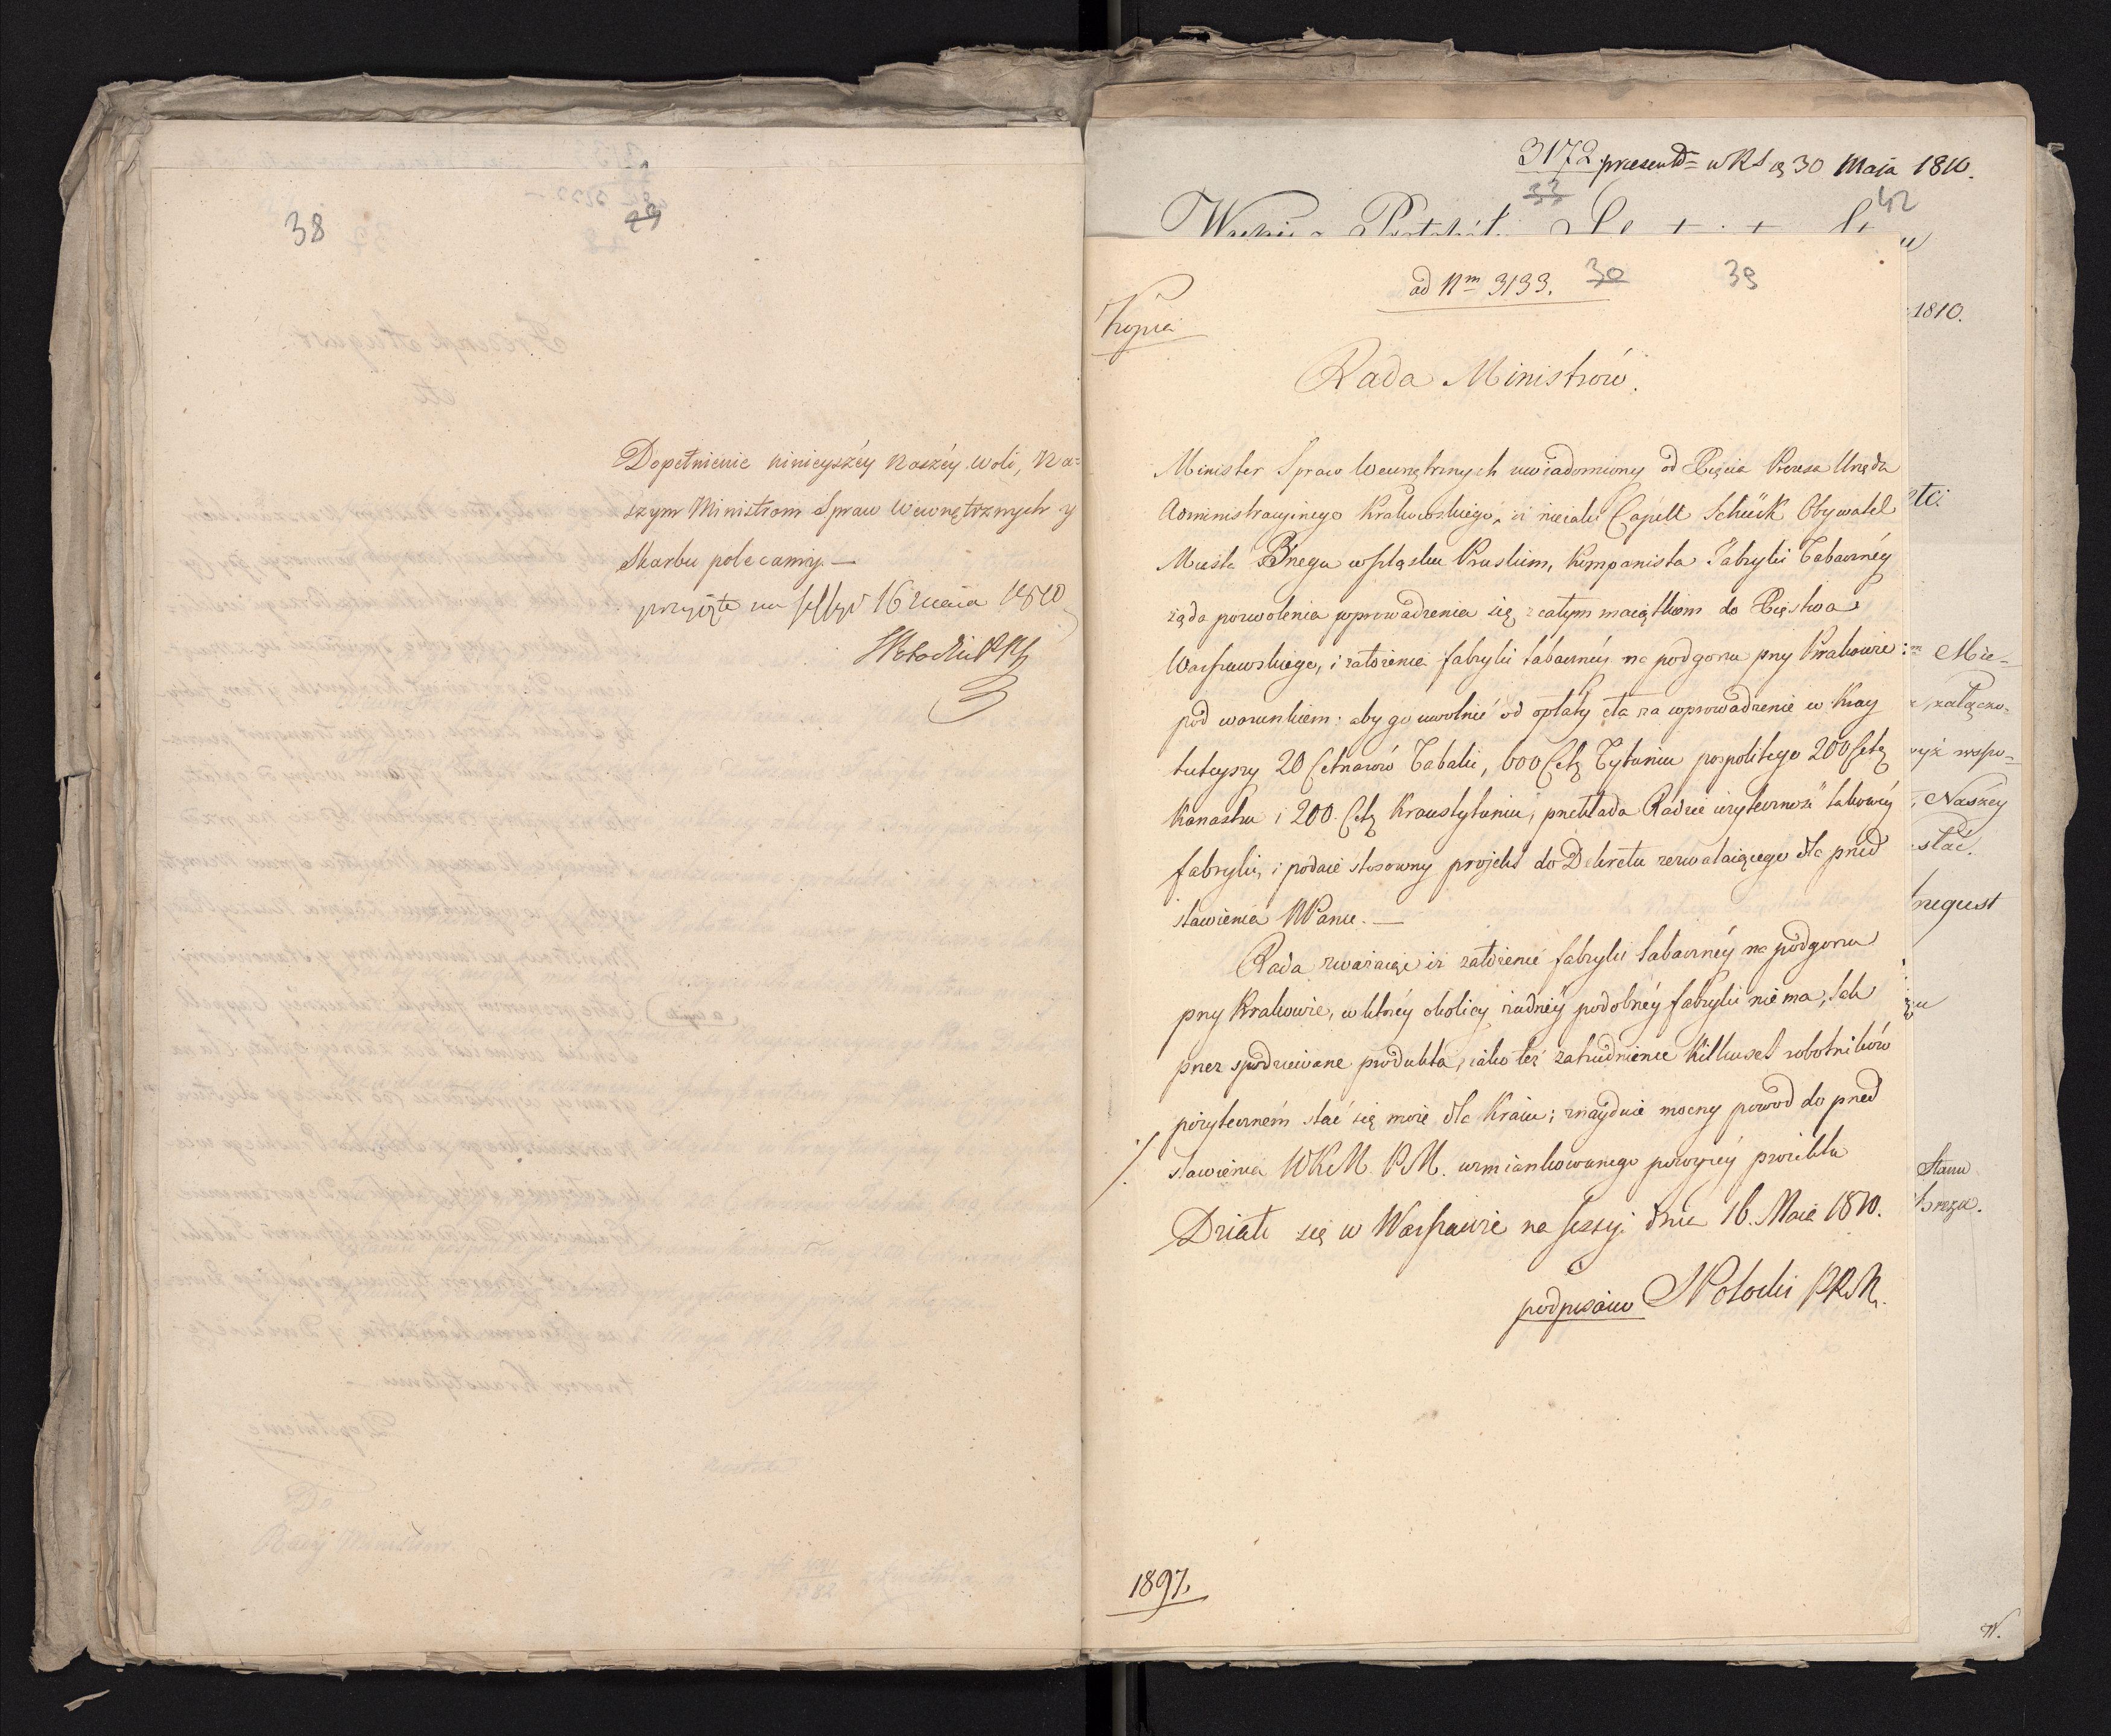 38
29
Dopełnienie ninieyszéy Naszéy woli, Na=
szym Ministrom Spraw Wewnętrznych y
Skarbu polecamy. —
przyięte na Sessyi 16 maia 1810
SPotocki PRM
3172 praesentd= w RS d 30 Maja 1810.
33
42
ad Nm 3133. 30 39
Kopia
Rada Ministrów.
Minister Spraw Wewnętrznych uwiadomiony od Xięcia Prezesa Urzędu
Administracyinego Krakowskiego, iż nieiaki Capelt Schück Obywatel
Miasta Brzegu w Szląsku Pruskim, Kompanista Fabryki Tabaczney
żąda pozwolenia wprowadzenia się z całym maiątkiem do Xięstwa
Warszawskiego, i założenia fabryki tabaczney na podgórzu przy Krakowie:
pod warunkiem: aby go uwolnić od opłaty cła za wprowadzenie w Kray
tuteyszy 20 Cetnarów Tabaki, 600 Cetn Tytuniu pospolitego 200 Cetn
Kanastru i 200. Cetn Kraustytuniu, przekłada Radzie użyteczność takowéy
fabryki, i podaie stosowny projekt do Dekretu zezwalaiącego dla przed
stawienia NPanu. —
Rada zważaiąc iż założenie fabryki tabacznéy na podgórzu
przy Krakowie, w któréy okolicy żadnéy podobnéy fabryki nie ma, tak
przez spodziewane produkta, iako też zatrudnienie kilkuset robotników
pożytecznem stać się może dla Kraiu; znayduie mocny powód do przed
stawienia WKM. PM. wzmiankowanego powyżéy proiektu
Działo się w Warszawie na Sessyi dnia 16. Maia 1810.
podpisano SPotocki PRM.
1897.
1810.
etc:
Mie=
załączo=
wyż wspo=
Naszéy
stać.
Stanu
Breza.